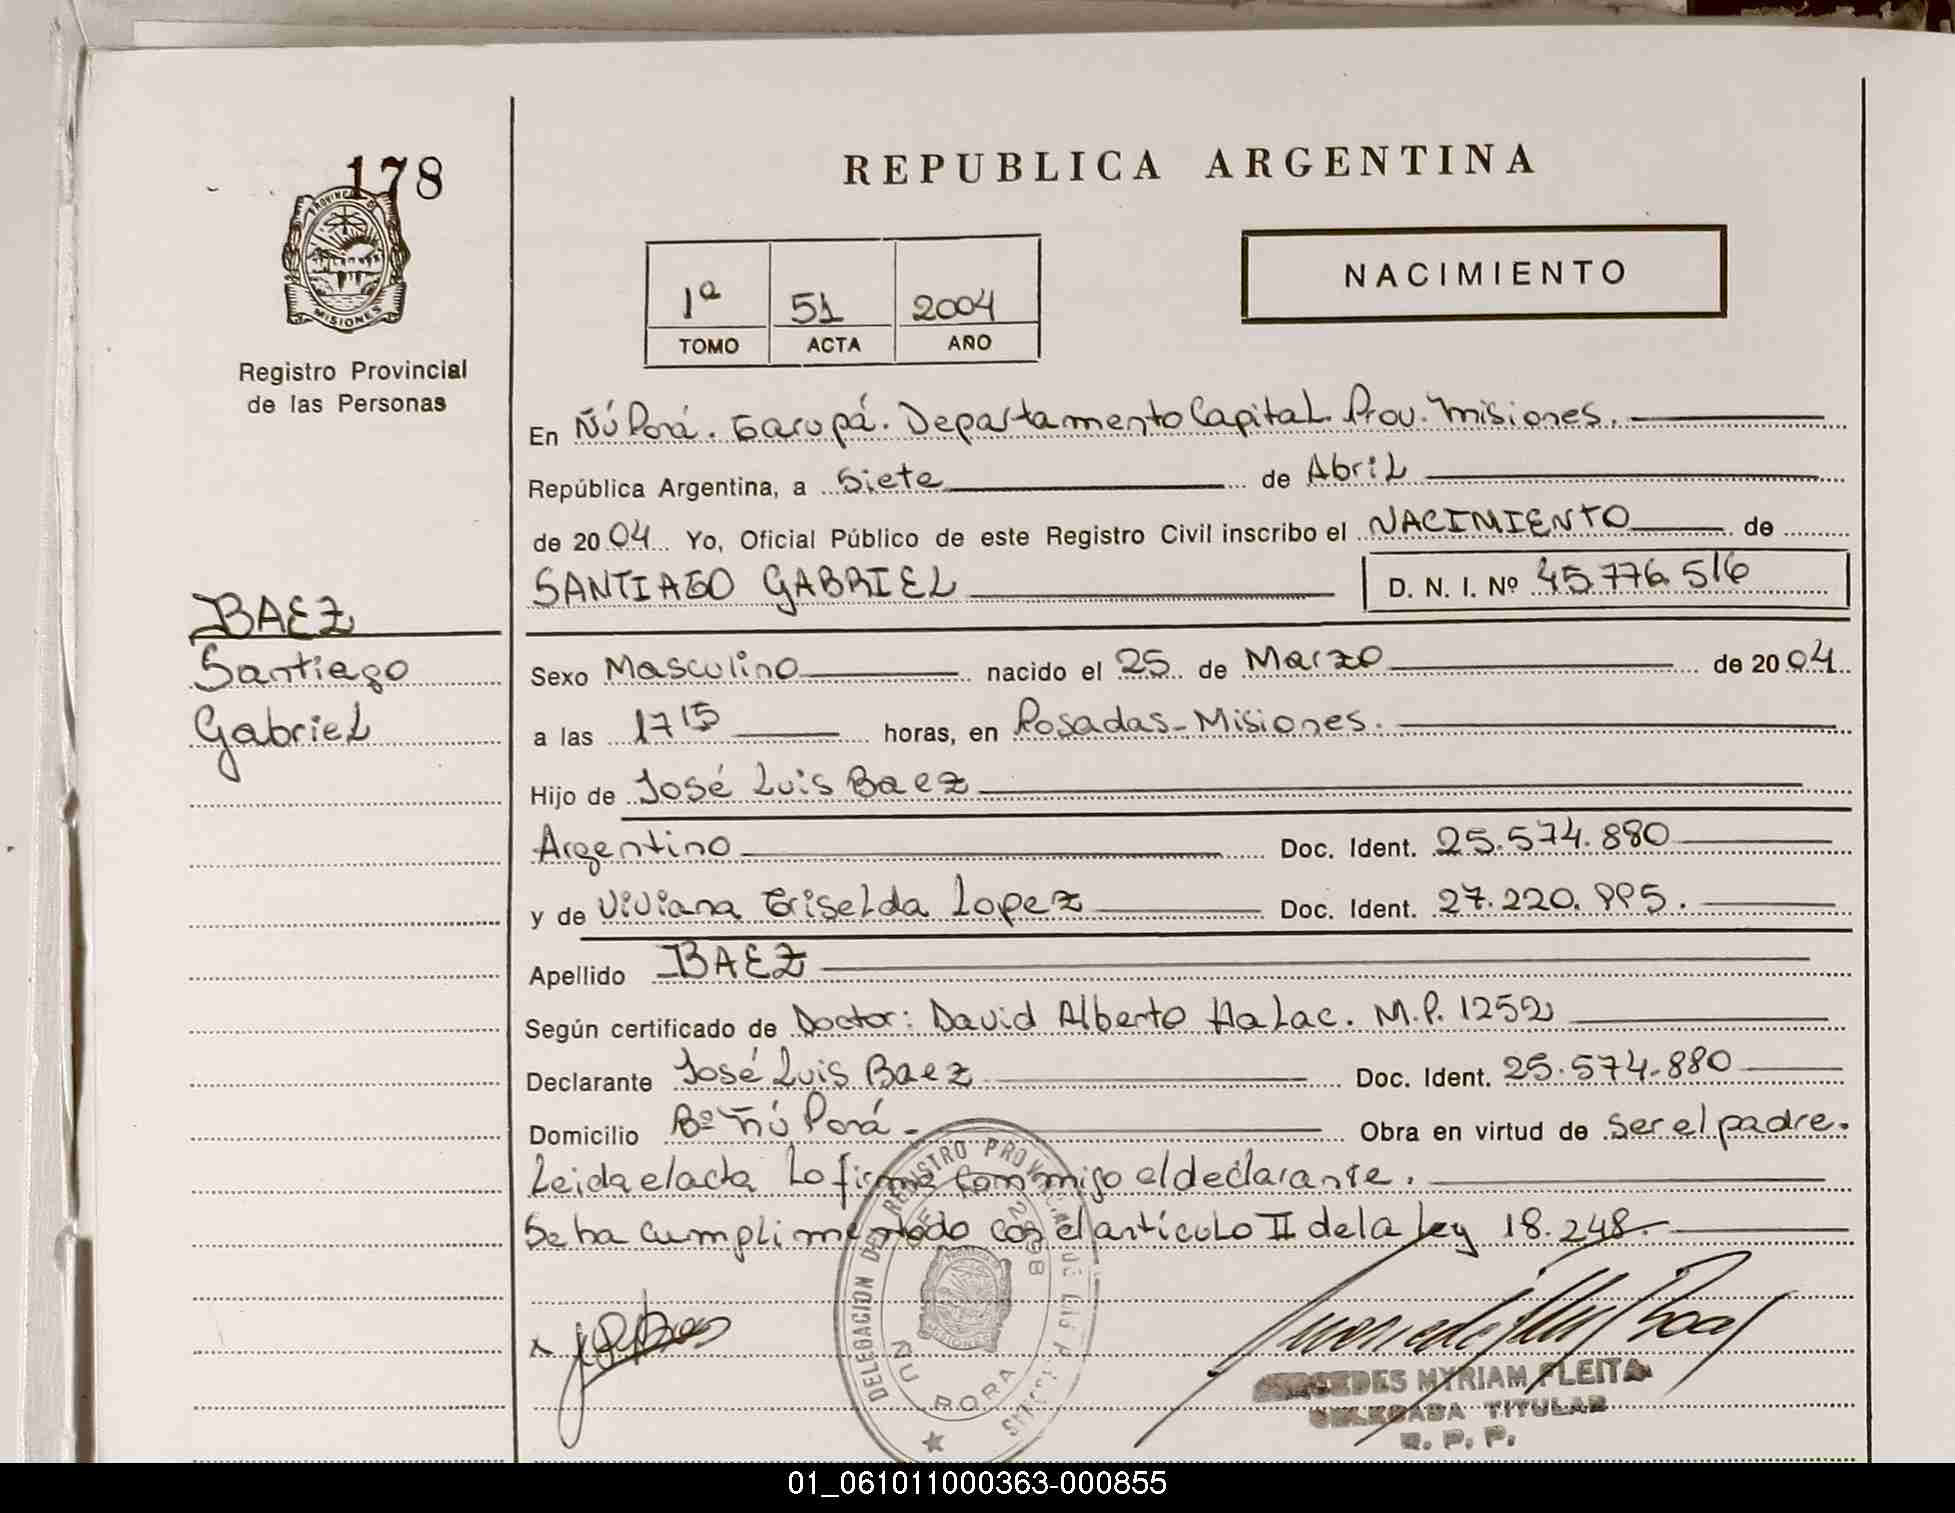 178
PROVINCIA DE
MISIONES
Registro Provincial
de las Personas
REPUBLICA ARGENTINA
NACIMIENTO
1ª 51 2004
TOMO ACTA AÑO
En Ñú Porá. Garupá. Departamento Capital. Prov. Misiones.
República Argentina, a Siete de Abril
de 2004 Yo, Oficial Público de este Registro Civil inscribo el NACIMIENTO de
SANTIAGO GABRIEL D. N. I. Nº 45.776.516
BAEZ
Santiago
Gabriel
Sexo Masculino nacido el 25 de Marzo de 2004
a las 17 15 horas, en Posadas - Misiones.
Hijo de José Luis Baez
Argentino Doc. Ident. 25.574.880
y de Viviana Griselda Lopez Doc. Ident. 27.220.995.
Apellido BAEZ
Según certificado de Doctor: David Alberto Halac. M.P. 1252
Declarante José Luis Baez Doc. Ident. 25.574.880
Domicilio Bº Ñú Porá - Obra en virtud de Ser el padre.
Leida el acta Lo firma conmigo el declarante.
Se ha cumplimentado con el artículo II de la Ley 18.248.
DELEGACION DEL REGISTRO PROVINCIAL DE LAS PERSONAS
ÑU PORA
MERCEDES MYRIAM FLEITA
DELEGADA TITULAR
R. P. P.
01_061011000363-000855